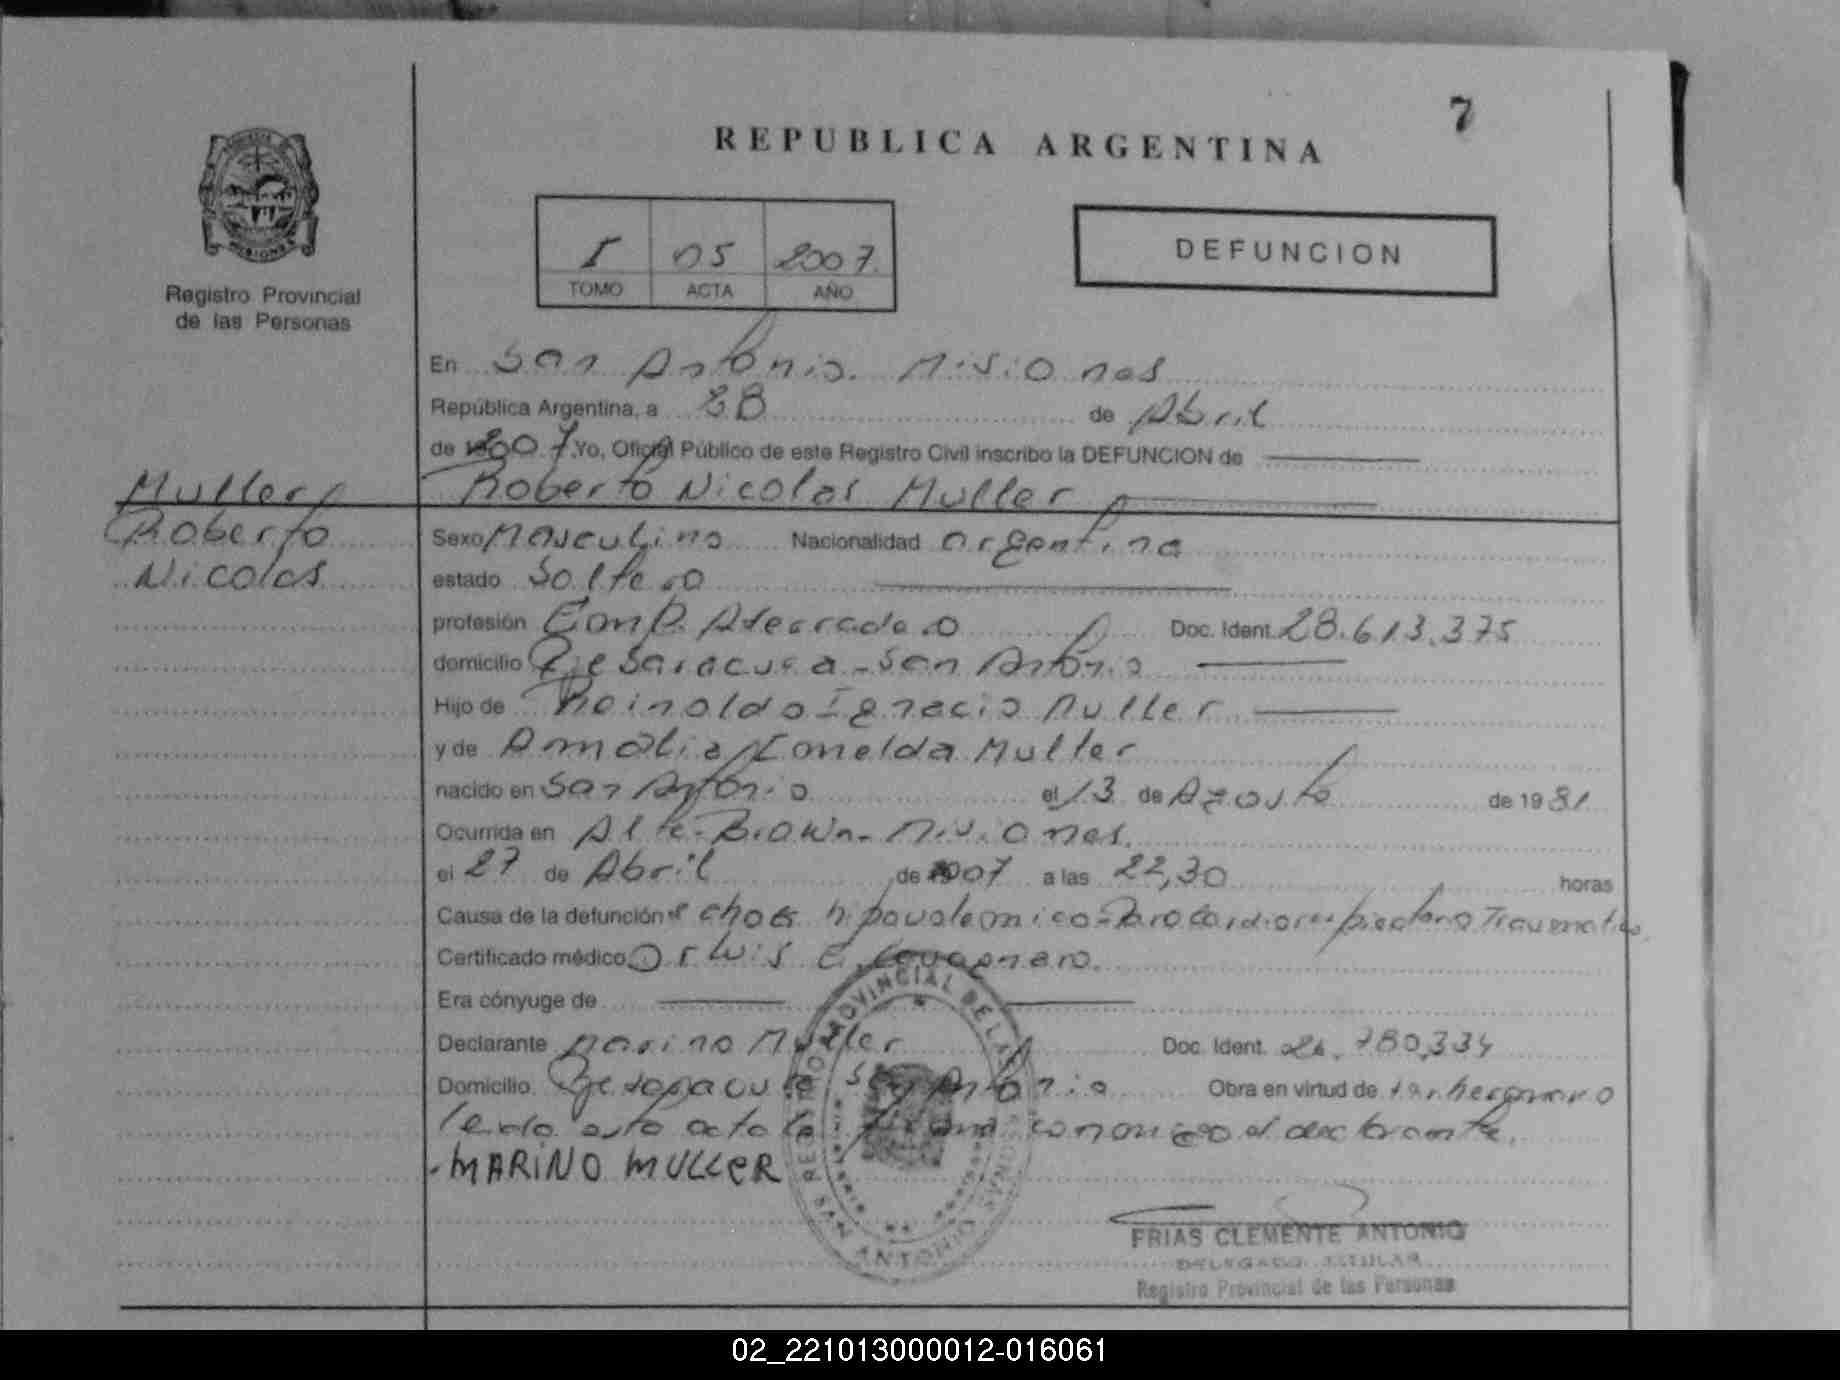 7
REPUBLICA ARGENTINA
I 05 2007
TOMO ACTA AÑO
DEFUNCION
MISIONES
Registro Provincial
de las Personas
En San Antonio. Misiones
República Argentina, a 28 de Abril
de 2007. Yo, Oficial Público de este Registro Civil inscribo la DEFUNCION de
Roberto Nicolas Muller
Muller
Roberto
Nicolas
Sexo Masculino Nacionalidad argentina
estado Soltero
profesión Emp. Aserradero Doc. Ident. 28.613.375
domicilio San Antonio
Hijo de Reinoldo Ignacio Muller
y de Amalia Imelda Muller
nacido en San Antonio el 13 de Agosto de 1981
Ocurrida en Alte-Brown-Misiones.
el 27 de Abril de 2007 a las 22,30 horas
Causa de la defunción chok hipovolemico-Paro cardiorespiratorio Traumatico
Certificado médico Dr Luis E.
Era cónyuge de
Declarante Marino Muller Doc. Ident. 780,334
Domicilio San Antonio Obra en virtud de ser hermano
leida esta acta la firma conmigo el declarante.
MARINO MULLER
REGISTRO PROVINCIAL DE LAS PERSONAS
SAN ANTONIO
FRIAS CLEMENTE ANTONIO
DELEGADO TITULAR
Registro Provincial de las Personas
02_221013000012-016061